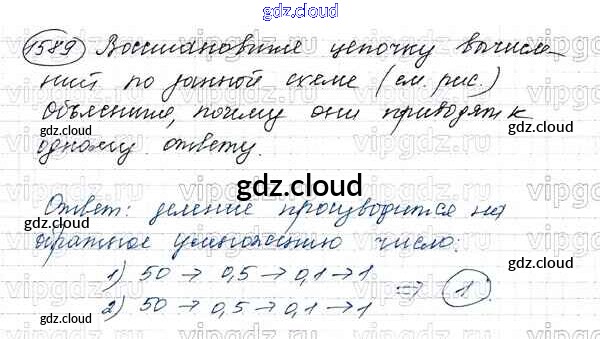 gdz.cloud
1589 Восстановите цепочку вычисле-
gdz.cloud
ний по данной схеме (см. рис.)
Объясните, почему они приводят к
gdz.cloud
gdz.cloud
одному ответу.
gdz.cloud
Ответ: деление производится на
обратное умножению число:
1) 50 → 0,5 → 0,1 → 1
2) 50 → 0,5 → 0,1 → 1
⇒ 1
gdz.cloud
gdz.cloud